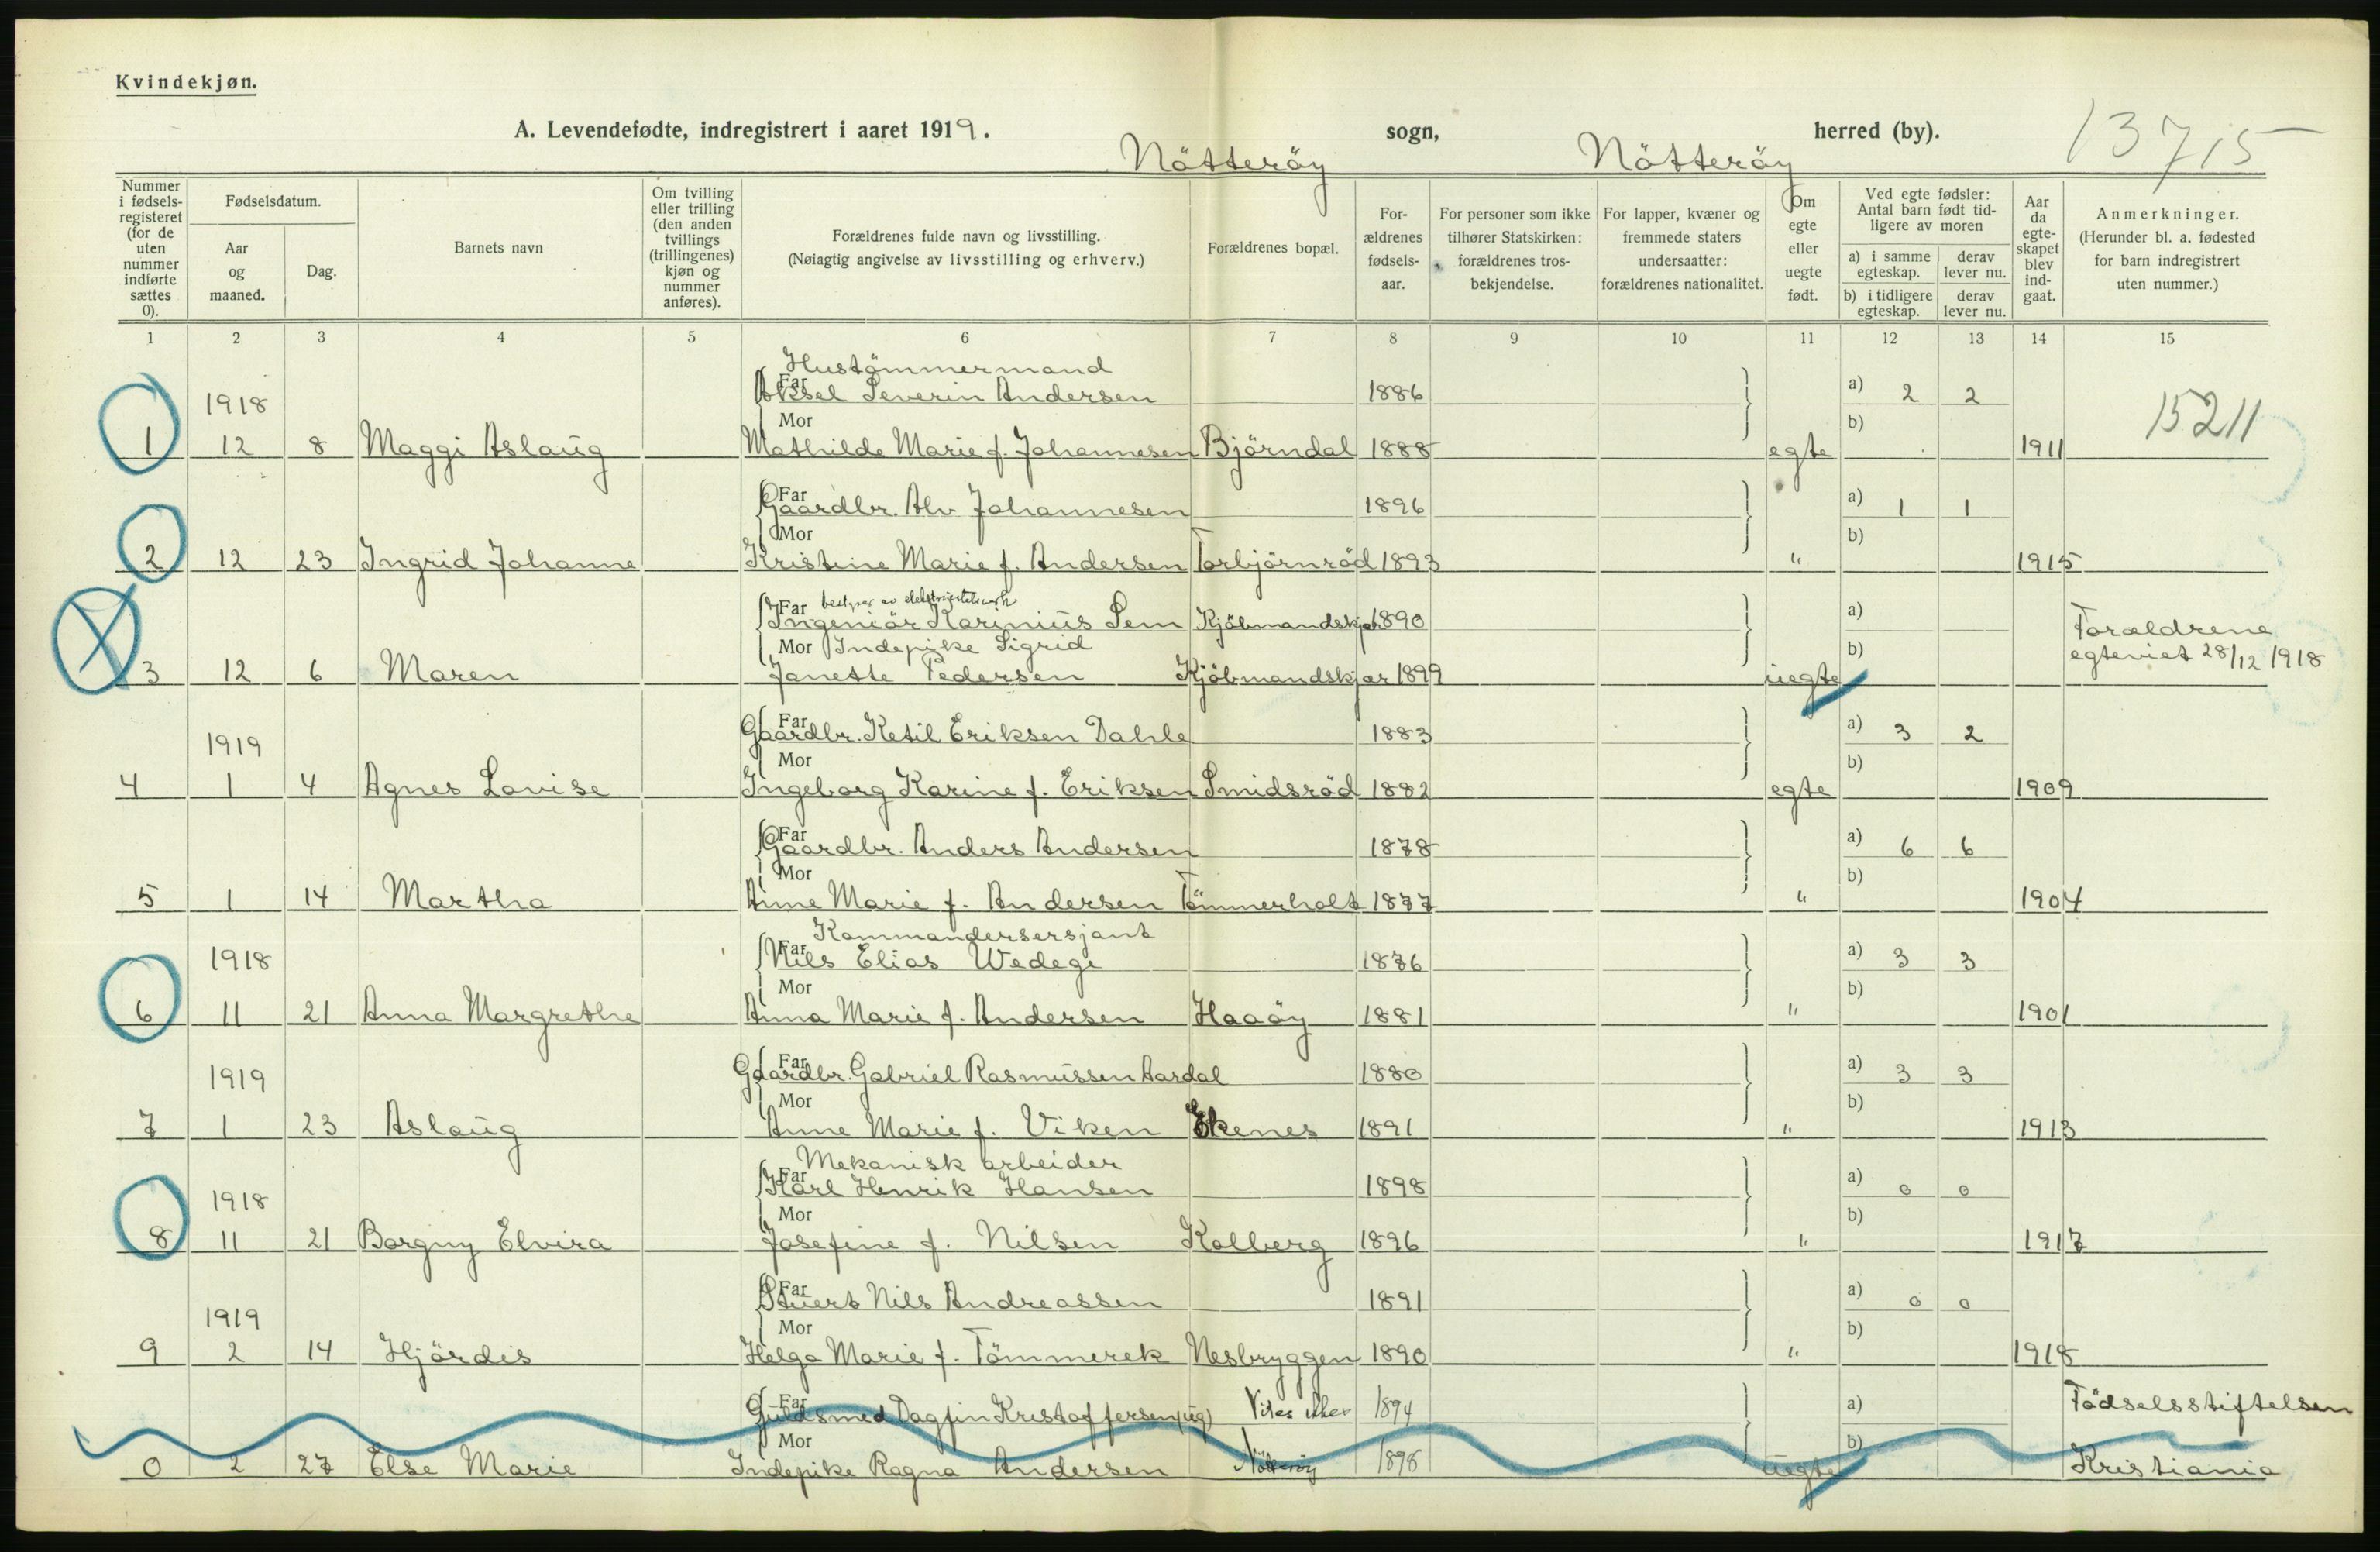 Kvindekjøn.
A. Levendefødte, indregistrert i aaret 1919. Nötteröy sogn, Nötteröy herred (by). 13715
Nummer i fødsels-registeret (for de uten nummer indførte sættes 0).
Fødselsdatum.
Aar og maaned.
Dag.
Barnets navn
Om tvilling eller trilling (den anden tvillings (trillingenes) kjøn og nummer anføres).
Forældrenes fulde navn og livsstilling.
(Nøiagtig angivelse av livsstilling og erhverv.)
Forældrenes bopæl.
For-ældrenes fødsels-aar.
For personer som ikke tilhører Statskirken: forældrenes tros-bekjendelse.
For lapper, kvæner og fremmede staters undersaatter: forældrenes nationalitet.
Om egte eller uegte født.
Ved egte fødsler: Antal barn født tid-ligere av moren
a) i samme egteskap. derav lever nu.
b) i tidligere egteskap. derav lever nu.
Aar da egte-skapet blev ind-gaat.
Anmerkninger.
(Herunder bl. a. fødested for barn indregistrert uten nummer.)
1 2 3 4 5 6 7 8 9 10 11 12 13 14 15
Hustömmermand
1918 Far Aksel Severin Andersen 1886 a) 2 2 15211
Mor b)
1 12 8 Maggi Aslaug Mathilde Marie f. Johannesen Björndal 1888 egte 1911
Far Gaardbr. Alv Johannesen 1896 a) 1 1
Mor b)
2 12 23 Ingrid Johanne Kristine Marie f. Andersen Torbjörnröd 1893 " 1915
bestyrer av elektricitetsverk
Far Ingeniör Karinius Sem Kjöbmandskjær 1890 a) Forældrene
Mor Indepike Sigrid b) egteviet 28/12 1918
3 12 6 Maren Janette Pedersen Kjöbmandskjær 1899 uegte
1919 Far Gaardbr. Ketil Eriksen Dahle 1883 a) 3 2
Mor b)
4 1 4 Agnes Lovise Ingeborg Karine f. Eriksen Smidsröd 1882 egte 1909
Far Gaardbr. Anders Andersen 1878 a) 6 6
Mor b)
5 1 14 Martha Anne Marie f. Andersen Tömmerholt 1877 " 1904
Kommandersersjant
1918 Far Nils Elias Wedege 1876 a) 3 3
Mor b)
6 11 21 Anna Margrethe Anna Marie f. Andersen Haaöy 1881 " 1901
1919 Far Gaardbr. Gabriel Rasmussen Aardal 1880 a) 3 3
Mor b)
7 1 23 Aslaug Anne Marie f. Viken Ekenes 1891 " 1913
Mekanisk arbeider
1918 Far Karl Henrik Hansen 1898 a) 0 0
Mor b)
8 11 21 Borgny Elvira Josefine f. Nilsen Kolberg 1896 " 1917
1919 Far Stuert Nils Andreassen 1891 a) 0 0
Mor b)
9 2 14 Hjördis Helga Marie f. Tömmerek Nesbryggen 1890 " 1918
Far Guldsmed Dagfin Kristoffersen (ug) Vites ikke 1894 a) Födselsstiftelsen
Mor b)
0 2 27 Else Marie Indepike Ragna Andersen Nötteröy 1898 uegte Kristiania